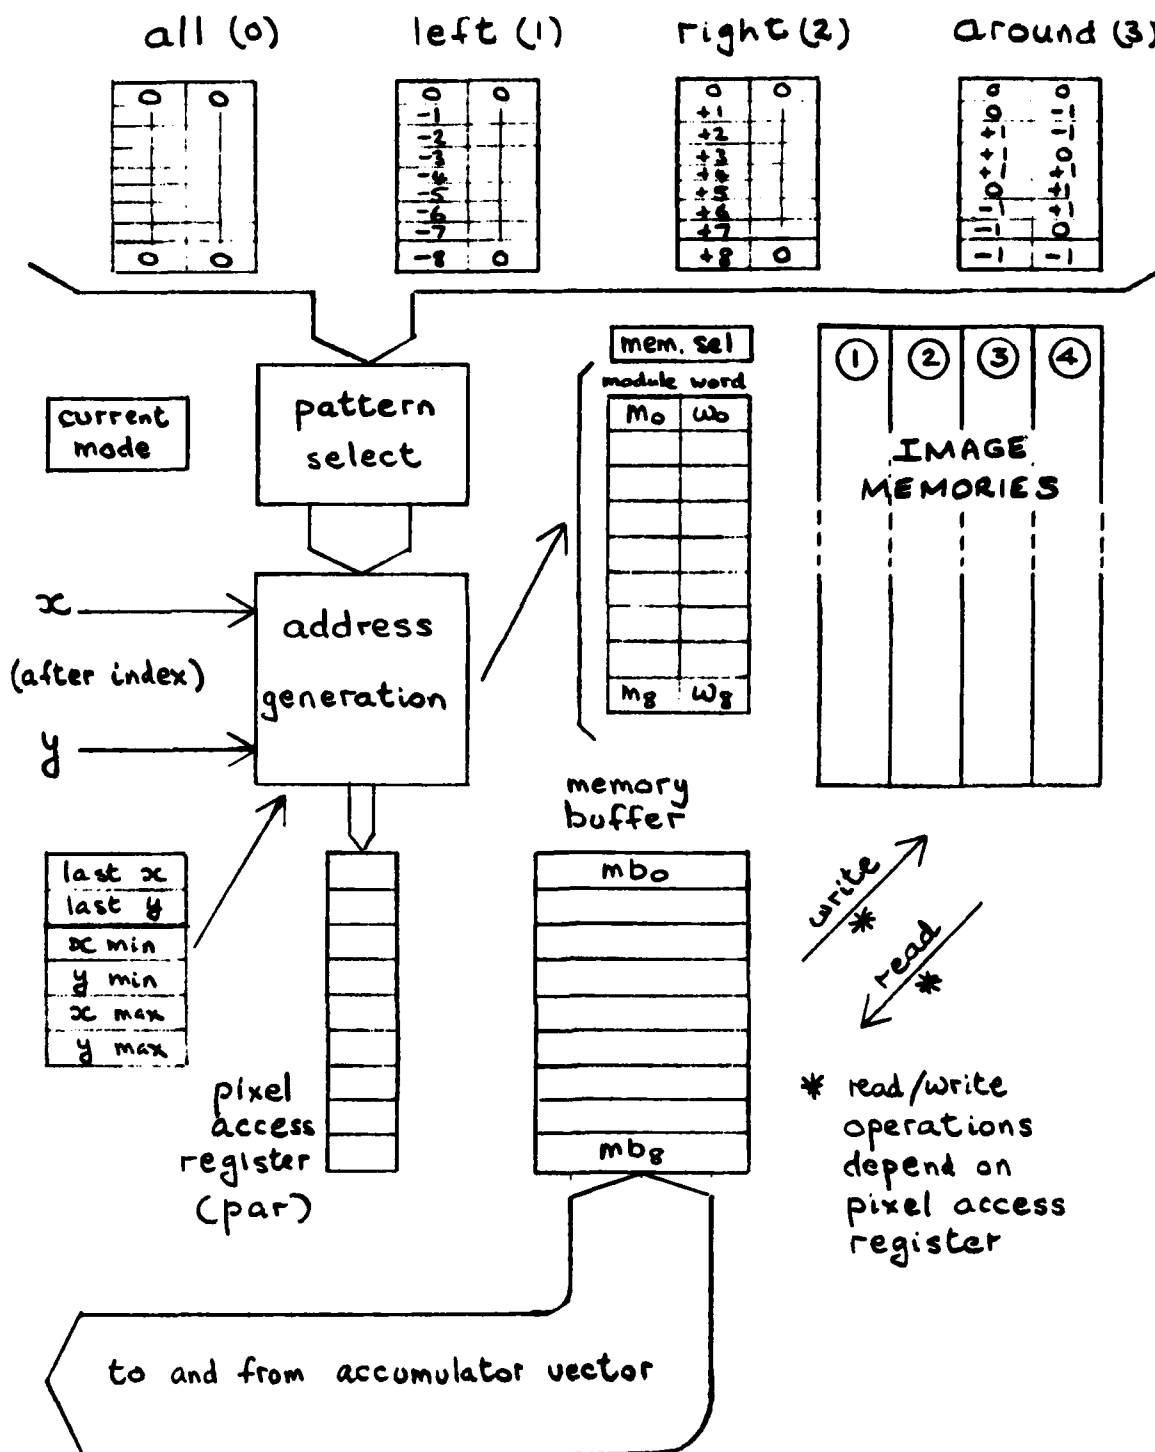 all (0)
left (1)
right (2)
around (3)
0 0
0 0
0 0
-1
-2
-3
-4
-5
-6
-7
-8 0
0 0
+1
+2
+3
+4
+5
+6
+7
+8 0
0 0
0 -1
+1 -1
+1 0
+1 +1
0 +1
-1 +1
-1 0
-1 -1
current
mode
pattern
select
mem. sel
module word
m0 w0
m8 w8
1 2 3 4
IMAGE
MEMORIES
x
(after index)
y
address
generation
last x
last y
x min
y min
x max
y max
pixel
access
register
(par)
memory
buffer
mb0
mb8
write
*
read
*
* read/write
operations
depend on
pixel access
register
to and from accumulator vector